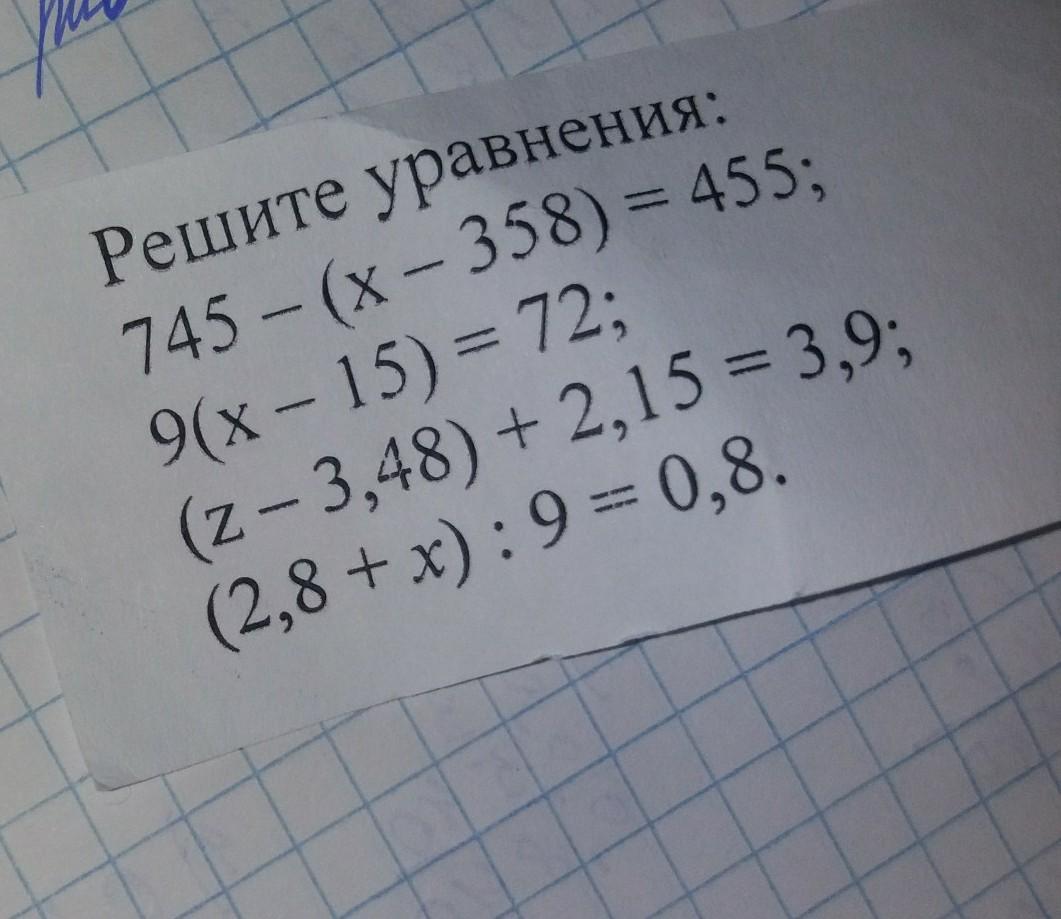 Решите уравнения:
745 – (x – 358) = 455;
9(x – 15) = 72;
(z – 3,48) + 2,15 = 3,9;
(2,8 + x) : 9 = 0,8.